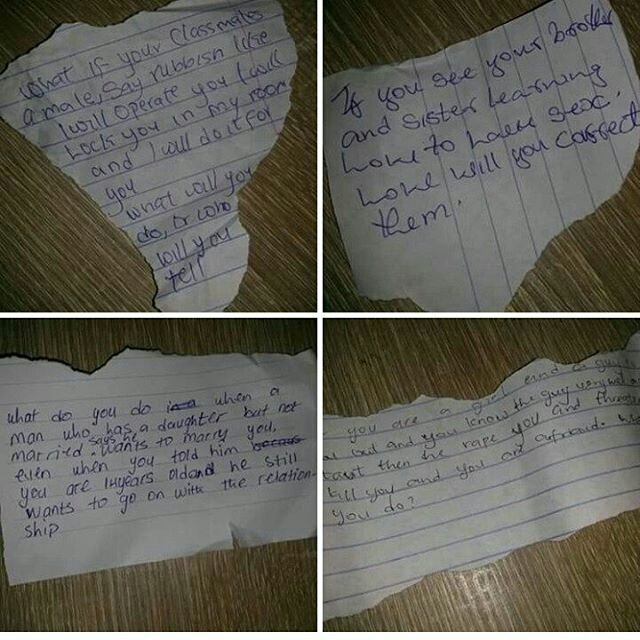 What if your Classmates
a male, Say rubbish like
I will operate you I will
Lock you in my room
and I will do it for
you
what will you
do, or who
will you
tell
If you see your brother
and sister learning
how to have sex.
how will you correct
them.
what do you do in a when a
man who has a daughter but not
married. says he wants to marry you,
even when you told him becaus
you are 14years old and he still
wants to go on with the relation-
ship
you are a girl and a guy
out and you know the guy very well
then he rape you and
kill you and you are afraid.
you do?